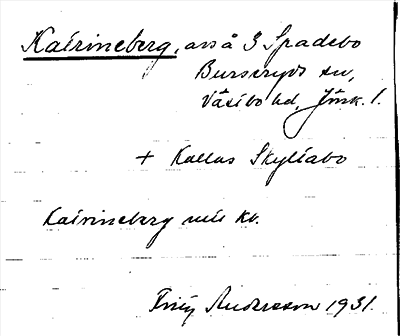 Katrineberg, avs å 3 Spadebo
Burseryds sn,
Västbo hd, Jönk. l.
+ Kallas Skyttabo
Katrineberg utis kv.
Frity Andersson 1931.